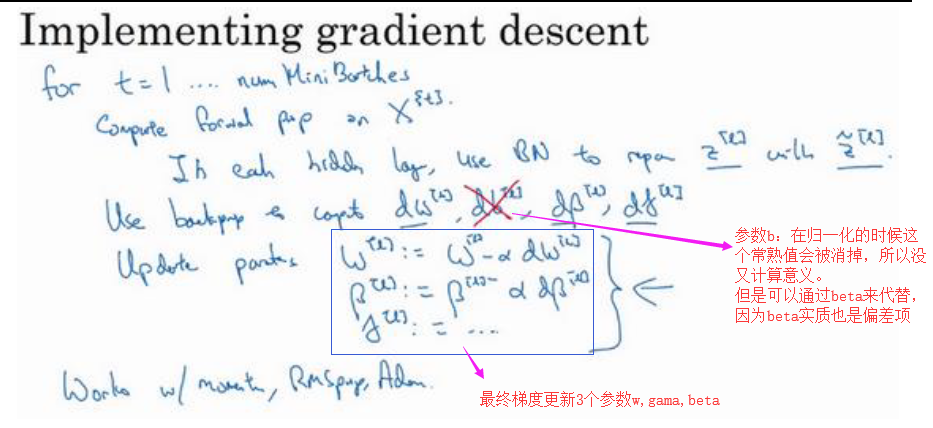 Implementing gradient descent
for t = 1 .... num Mini Batches
Compute forward prop on X^{t}.
In each hidden lay, use BN to repan z^[l] with z̃^[l].
Use backprop to compt dw^[l], db^[l], dβ^[l], dγ^[l]
Update parates
w^[l] := w^[l] - α dw^[l]
β^[l] := β^[l] - α dβ^[l]
γ^[l] := ....
Works w/ momentm, RMSprop, Adam.
参数b:在归一化的时候这
个常熟值会被消掉,所以没
又计算意义。
但是可以通过beta来代替,
因为beta实质也是偏差项
最终梯度更新3个参数w,gama,beta